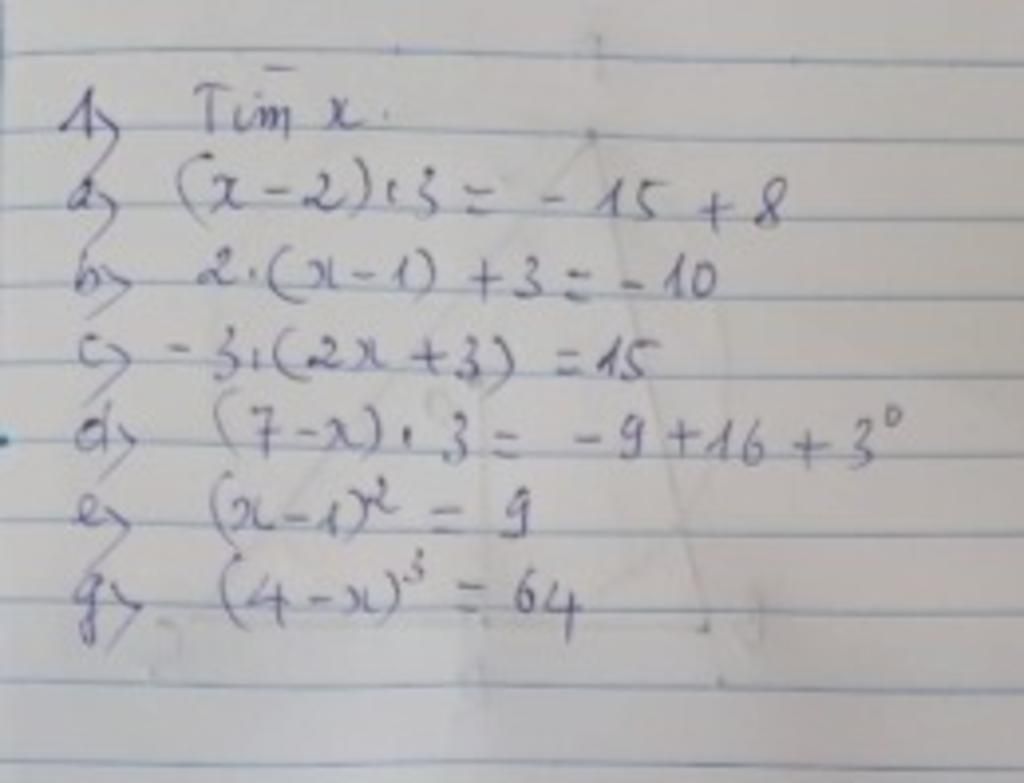 1, Tìm x.
a, (x-2).3 = -15 + 8
b, 2.(x-1) + 3 = -10
c, -3.(2x + 3) = 15
d, (7-x).3 = -9 + 16 + 3⁰
e, (x-1)² = 9
g, (4-x)³ = 64